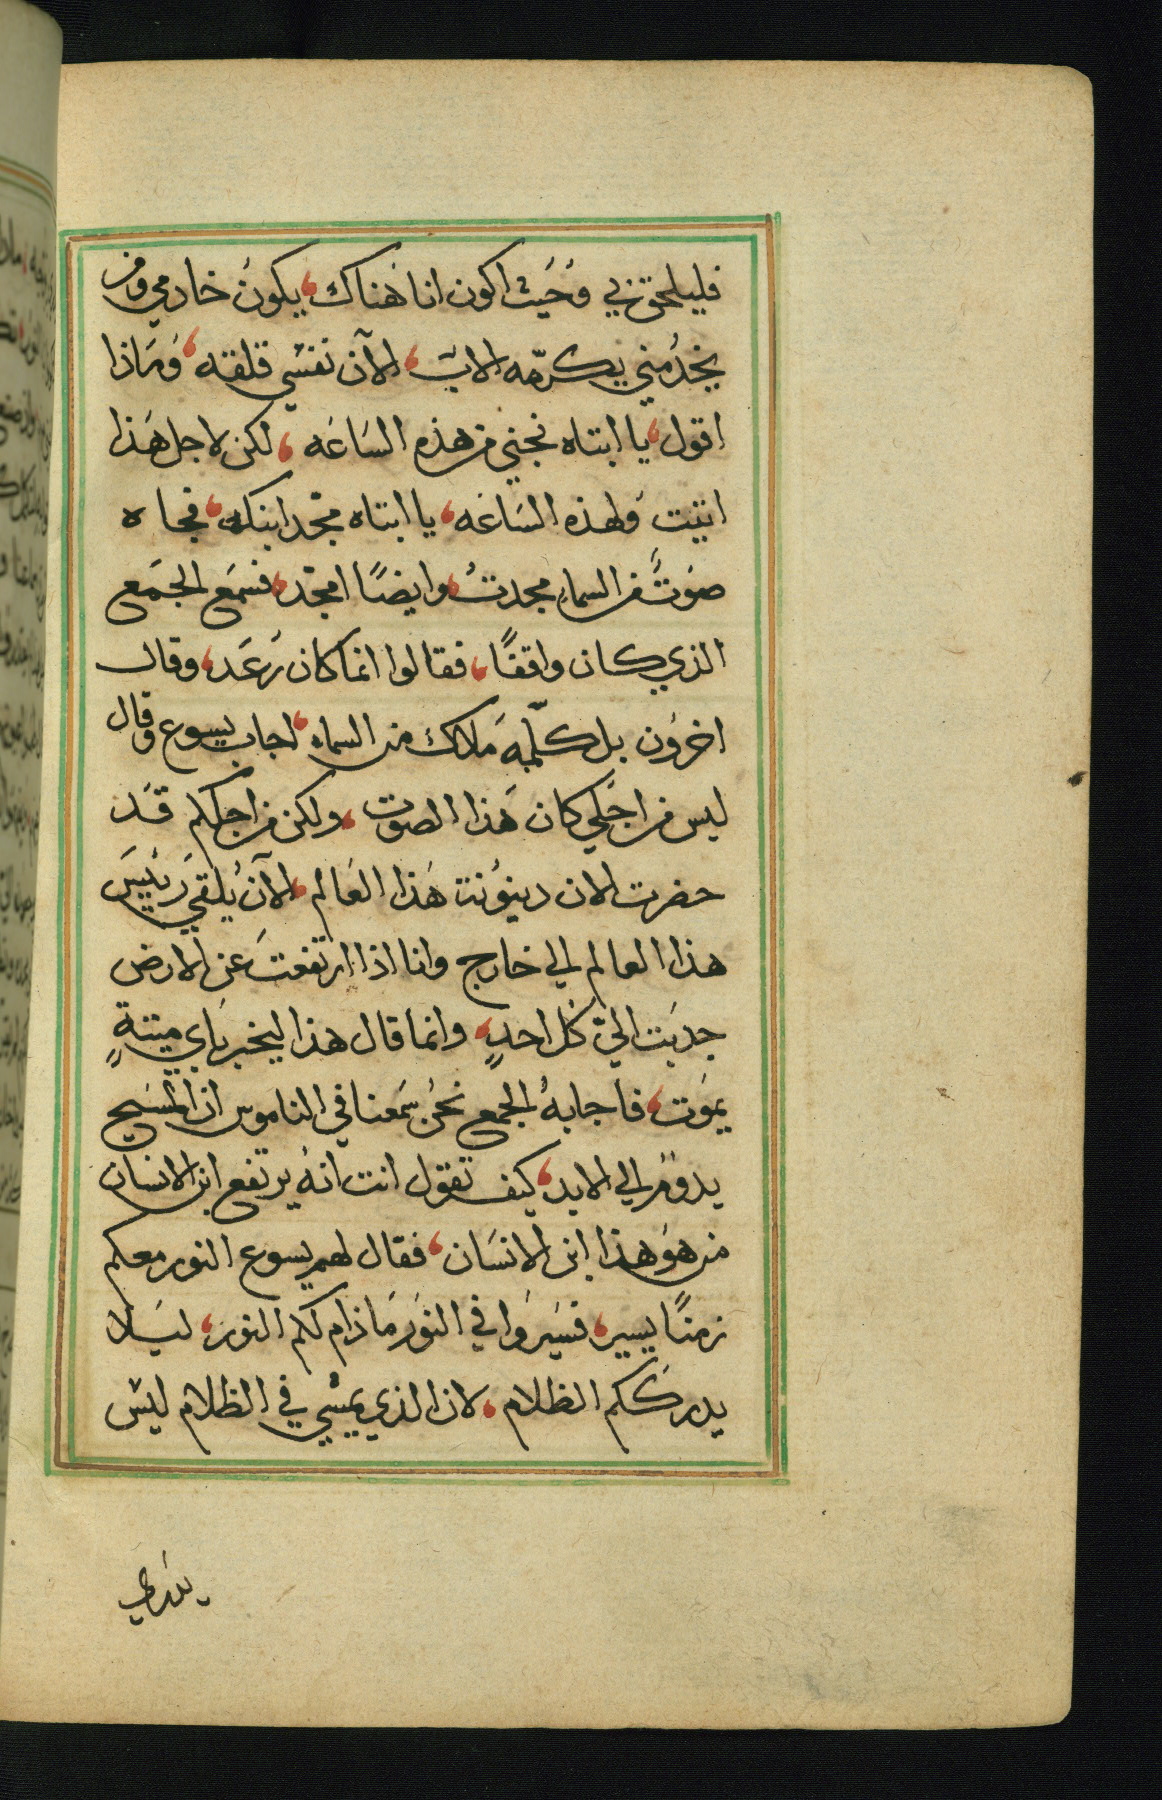 فليلحق بي وحَيث اكون انا هناك، يكون خادمي ومن
يخدُمني يكرّمه الاب، الآن نفسي قلقه، وَمَاذا
اقول، يا ابتاه نجني من هذه السَاعَه، لكن لاجل هَذا
اتيت وَلهذه السَاعَه، يا ابتاه مجّد ابنك، فجاه
صَوتٌ من السماءِ مجدتُ، وايضًا امجّد، فسمَع الجمَع
الذي كان واقفًا، فقالوا انما كان رَعَد، وقال
اخرون بل كلّمهَ مَلاك من السماء، اجاب يسوع وقال
ليس من اجَلي كان هَذا الصَوت، ولكن من اجلكم قَد
حضرت الان دينوُنة هَذا العَالم، الآن يُلقىَ رَئيسَ
هذا العالم الي خارج وانا اذا ارتفعتَ عن الارض
جدبَت اليّ كُل احدٍ، وانما قال هذا ليخبر بَاي ميتةٍ
يموَت، فاجابهُ الجمع نحنُ سَمعنا في الناموس ان المسَيح
يدوُم الي الابد، كيف تقول انت انهُ يرتفع ابن الانسان
من هوَ هذا ابن الانسَان، فقال لهم يسوع النور معكم
زمنًا يسير، فسَيروَا في النوَر مَا ذام لكم النور، ليَلا
يدرَككم الظلام، لان الذي يمشي في الظلام ليسَ
يدري